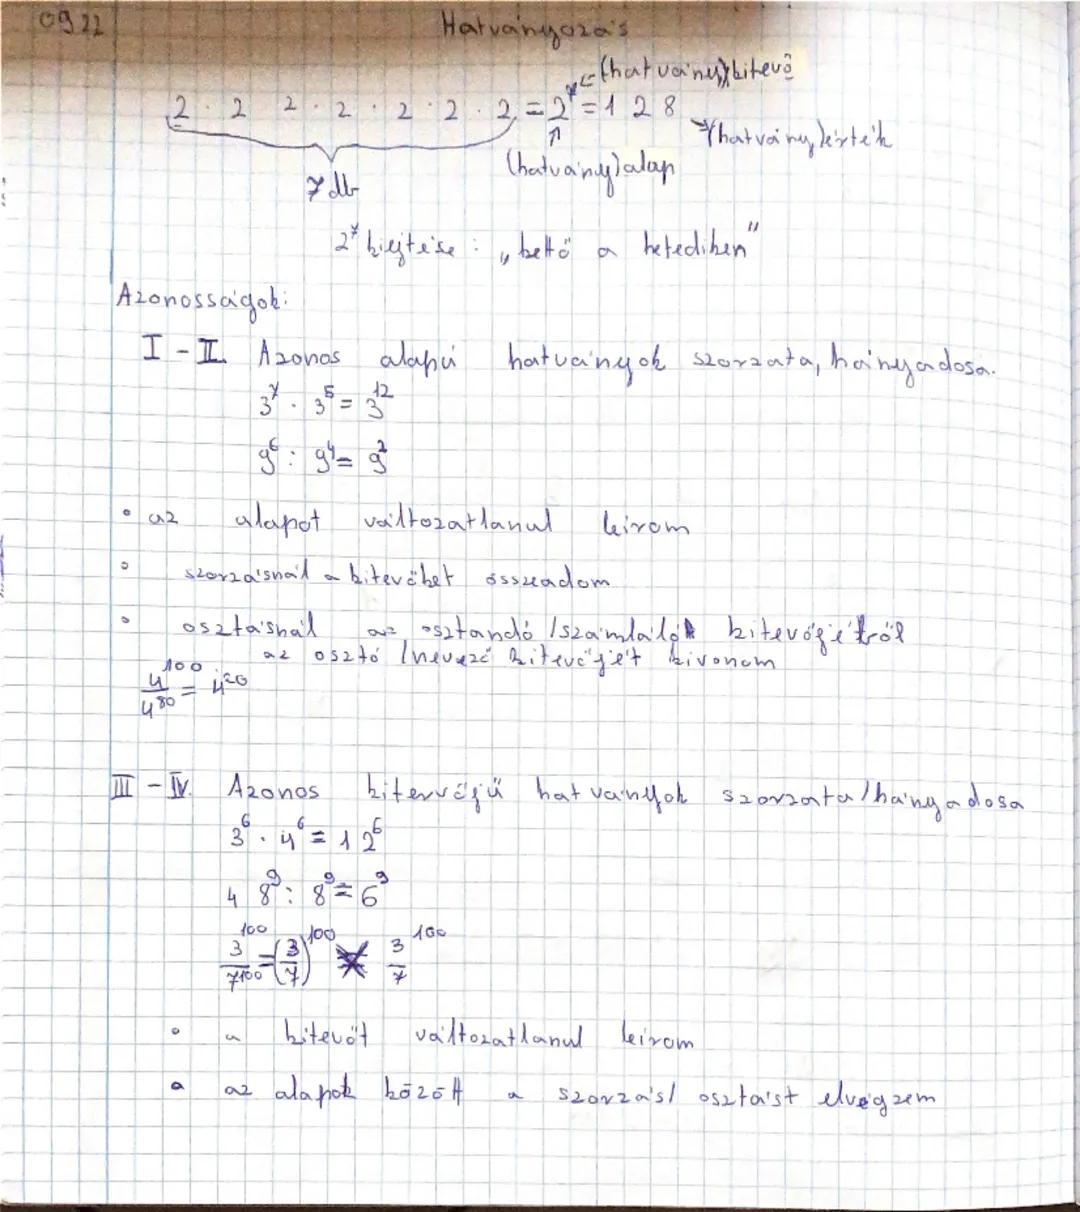 0922 Hatványozás
(hatvány)kitevő
2 · 2 · 2 · 2 · 2 · 2 · 2 = 2⁷ = 128
(hatvány)érték
(hatvány)alap
7 db
2⁷ kiejtése: „kettő a hetediken"
Azonosságok:
I - II. Azonos alapú hatványok szorzata, hányadosa.
3⁷ · 3⁵ = 3¹²
9⁶ : 9⁴ = 9²
• az alapot változatlanul leírom
• szorzásnál a kitevőket összeadom
• osztásnál az osztandó /számláló kitevőjéből
az osztó /nevező kitevőjét kivonom
4¹⁰⁰/4⁸⁰ = 4²⁰
III - IV. Azonos kitevőjű hatványok szorzata/hányadosa
3⁶ · 4⁶ = 12⁶
48⁹ : 8⁹ = 6⁹
3¹⁰⁰/7¹⁰⁰ = (3/7)¹⁰⁰ ≠ 3¹⁰⁰/7
• a kitevőt változatlanul leírom
• az alapok között a szorzás/osztást elvégzem